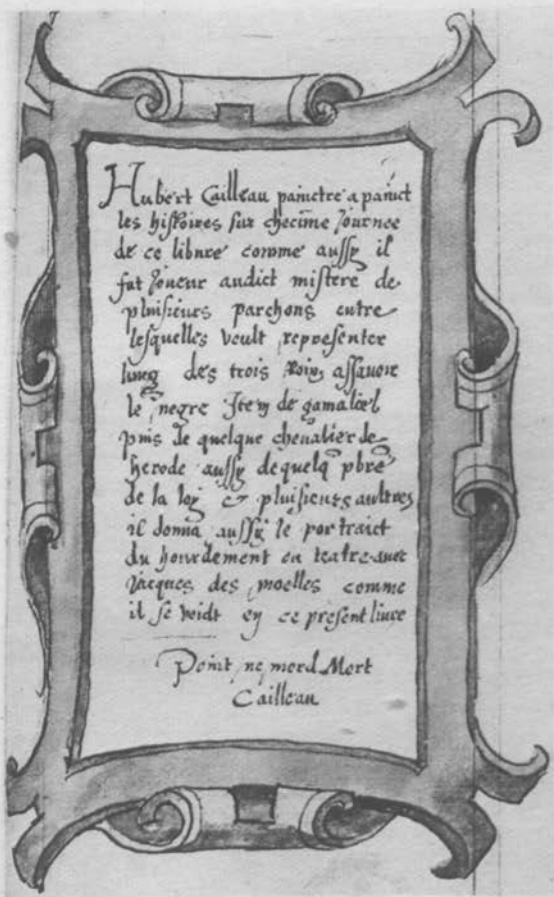 Hubert Cailleau painctre a painct
les histoires sur checūne Journee
de ce libure comme aussy il
fut Joueur audict mistere de
pluisieurs parchons entre
lesquelles veult representer
lung des trois Roix assavoir
le negre Item de gamaliel
puis de quelque chevalier de
herode aussy de quelq pbre
de la loy & pluisieurs aultres
il donna aussy le portraict
du hourdement ou teatre avec
Jacques des moelles comme
il se veidt en ce present livre
Point ne mord Mort
Cailleau